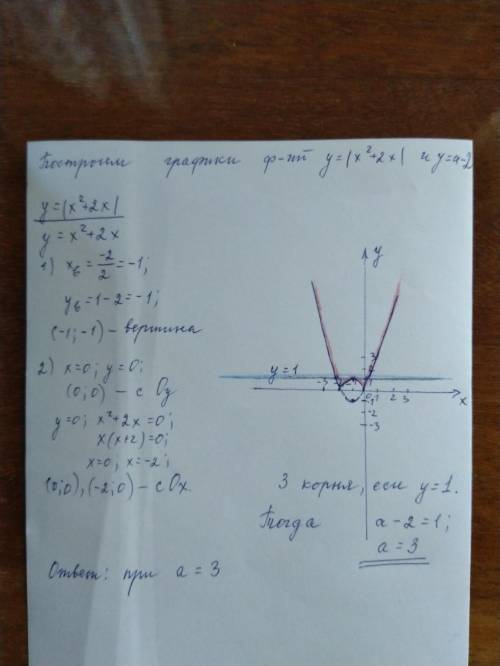 Построим графики ф-ий y=|x²+2x| и y=a-2
y=|x²+2x|
y = x²+2x
1) xв = -2/2 = -1;
yв = 1-2 = -1;
(-1; -1) - вершина
2) x=0; y=0;
(0;0) - с Oy
y=0; x²+2x=0;
x(x+2)=0;
x=0; x=-2;
(0;0), (-2;0) - с Ox.
y
3
2
1
y=1
-3
0
1
2
3
x
-1
-2
-3
3 корня, если y=1.
Тогда a-2=1;
a=3
Ответ: при a=3